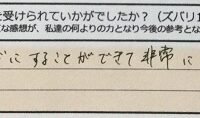 を受けられていかがでしたか？（ズバリ1
な感想が、私達の何よりの力となり今後の参考とな
にすることができて非常に